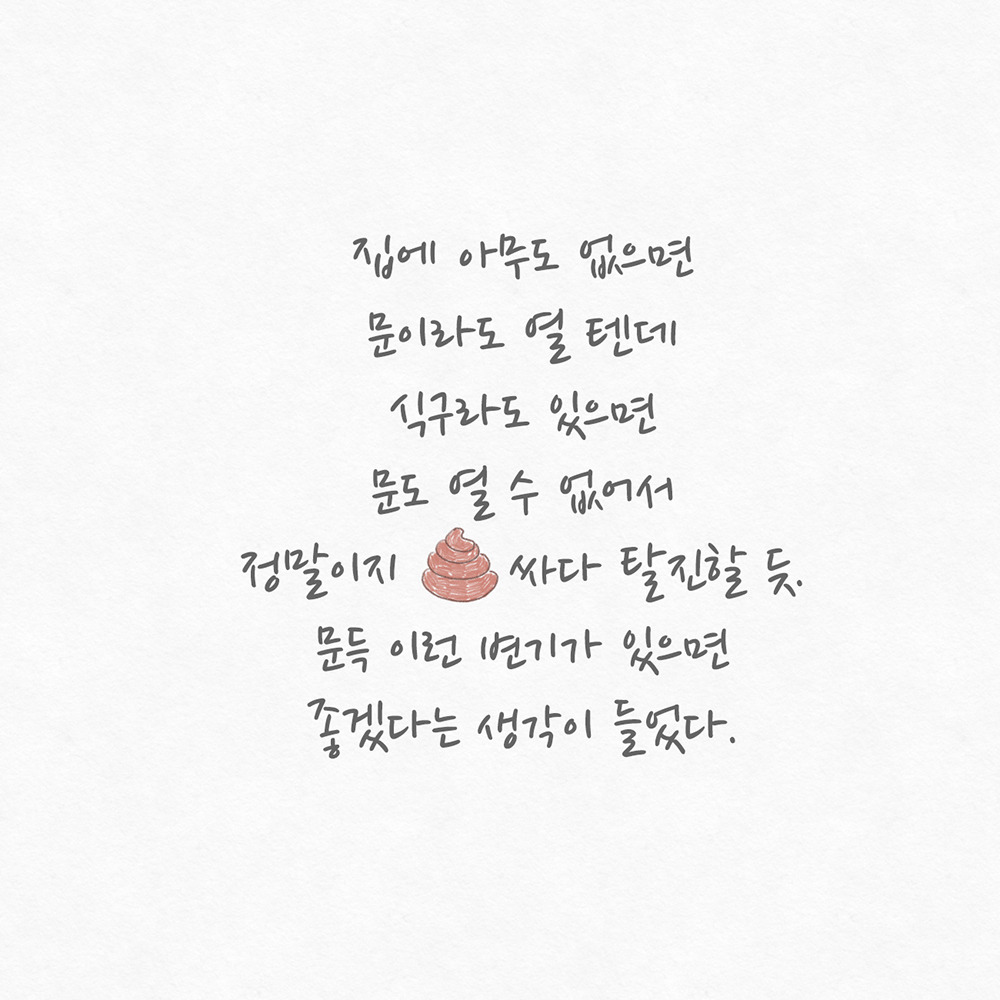 집에 아무도 없으면
문이라도 열 텐데
식구라도 있으면
문도 열 수 없어서
정말이지 싸다 탈진할 듯.
문득 이런 변기가 있으면
좋겠다는 생각이 들었다.